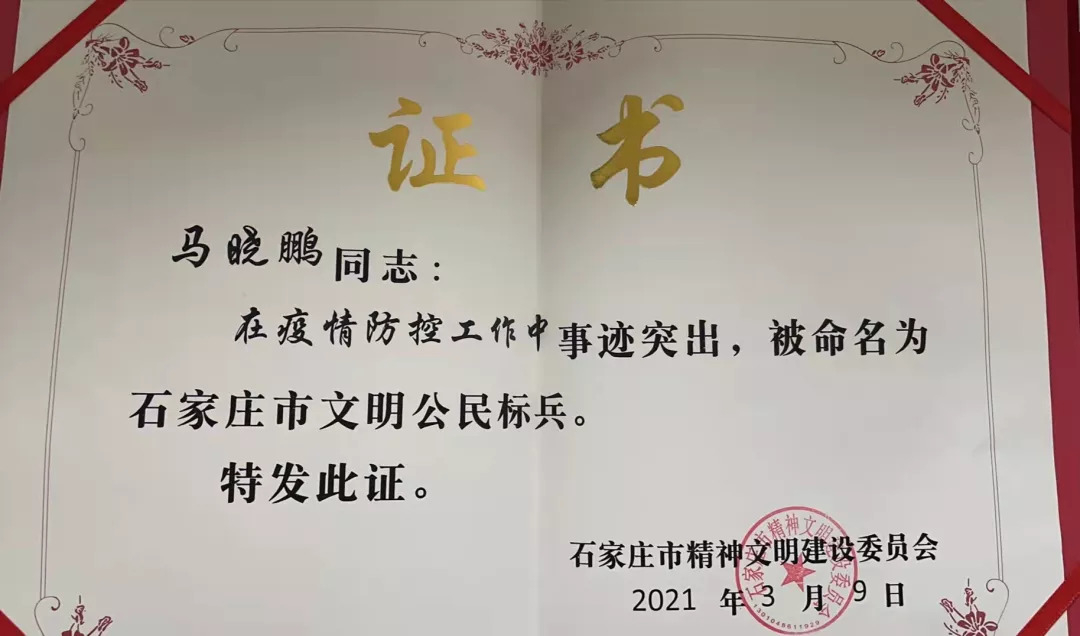 证书
马晓鹏同志：
在疫情防控工作中事迹突出，被命名为
石家庄市文明公民标兵。
特发此证。
石家庄市精神文明建设委员会
2021 年 3 月 9 日
石家庄市精神文明建设委员会